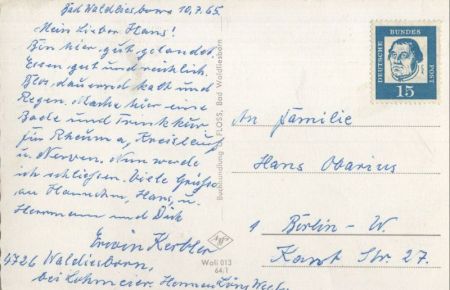 Bad Waldliesborn 10.7.65
Mein Lieber Hans!
Bin hier gut gelandet
Essen gut und reichlich.
Blos dauernd kalt und
Regen. Mache hier eine
Bade und Trink kur
für Rheuma, Kreislauf
u Nerven. Nun werde
ich schliessen. Viele Grüsse
an Hannchen, Hans, u
Herrmann und Dich
Erwin Kerbler
4726 Waldliesborn,
bei Lohmeier
Buchhandlung U. FLOSS, Bad Waldliesborn
Agfa
Wali 013
64/1
DEUTSCHE BUNDES POST
15
An Familie
Hans Obarius
1 Berlin - W.
Kant Str. 27.